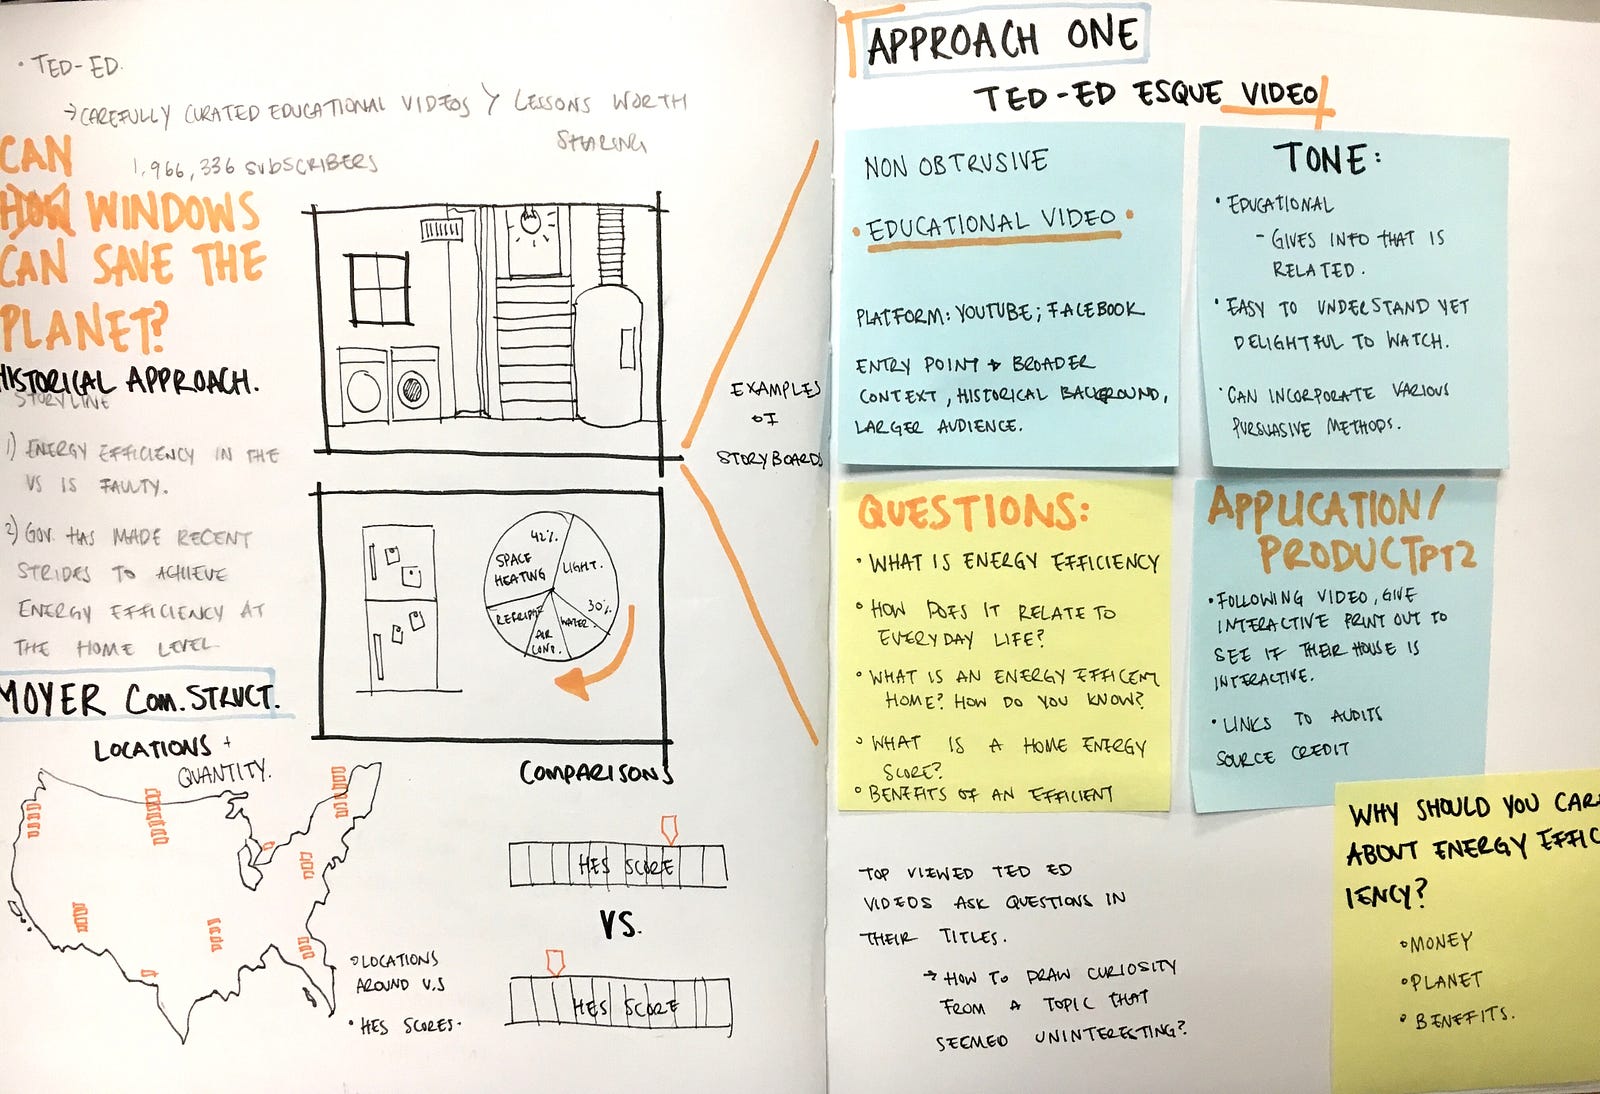 • TED-ED.
→ CAREFULLY CURATED EDUCATIONAL VIDEOS > LESSONS WORTH
SHARING
1,966,336 SUBSCRIBERS
CAN
HOW WINDOWS
CAN SAVE THE
PLANET?
HISTORICAL APPROACH.
STORYLINE
1) ENERGY EFFICIENCY IN THE
US IS FAULTY.
2) GOV. HAS MADE RECENT
STRIDES TO ACHIEVE
ENERGY EFFICIENCY AT
THE HOME LEVEL.
MOYER COM. STRUCT.
LOCATIONS +
QUANTITY.
• LOCATIONS
AROUND U.S
• HES SCORES.
EXAMPLES
OF
STORYBOARDS
42%.
SPACE
HEATING
LIGHT.
30%
WATER
AIR
COND.
COMPARISONS
HES SCORE
VS.
HES SCORE
APPROACH ONE
TED-ED ESQUE VIDEO
NON OBTRUSIVE
• EDUCATIONAL VIDEO •
PLATFORM: YOUTUBE; FACEBOOK
ENTRY POINT → BROADER
CONTEXT, HISTORICAL BACKGROUND,
LARGER AUDIENCE.
TONE:
• EDUCATIONAL
- GIVES INFO THAT IS
RELATED.
• EASY TO UNDERSTAND YET
DELIGHTFUL TO WATCH.
• CAN INCORPORATE VARIOUS
PURSUASIVE METHODS.
QUESTIONS:
• WHAT IS ENERGY EFFICIENCY
• HOW DOES IT RELATE TO
EVERYDAY LIFE?
• WHAT IS AN ENERGY EFFICENT
HOME? HOW DO YOU KNOW?
• WHAT IS A HOME ENERGY
SCORE?
• BENEFITS OF AN EFFICIENT
APPLICATION/
PRODUCT PT2
• FOLLOWING VIDEO, GIVE
INTERACTIVE PRINT OUT TO
SEE IF THEIR HOUSE IS
INTERACTIVE.
• LINKS TO AUDITS
SOURCE CREDIT
TOP VIEWED TED ED
VIDEOS ASK QUESTIONS IN
THEIR TITLES.
→ HOW TO DRAW CURIOSITY
FROM A TOPIC THAT
SEEMED UNINTERESTING?
WHY SHOULD YOU CAR
ABOUT ENERGY EFFIC
IENCY?
• MONEY
• PLANET
• BENEFITS.